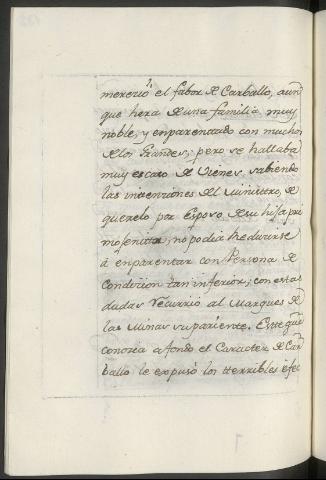 mereció el fabor de Carballo, aun
que hera de una familia muy
noble, y enparentado con muchos
de los Grandes; pero se hallaba
muy escaso de vienes, sabiendo
las intenciones del Ministro, de
querelo por Esposo de su hija pri
mogenita, no podia reducirse
á enparentar con Persona de
Condicion tan inferior; con estas
dudas recurrió al Marques de
las Minas su pariente. Este que
conocia a fondo el Caracter de Car
ballo le expuso los terribles efec